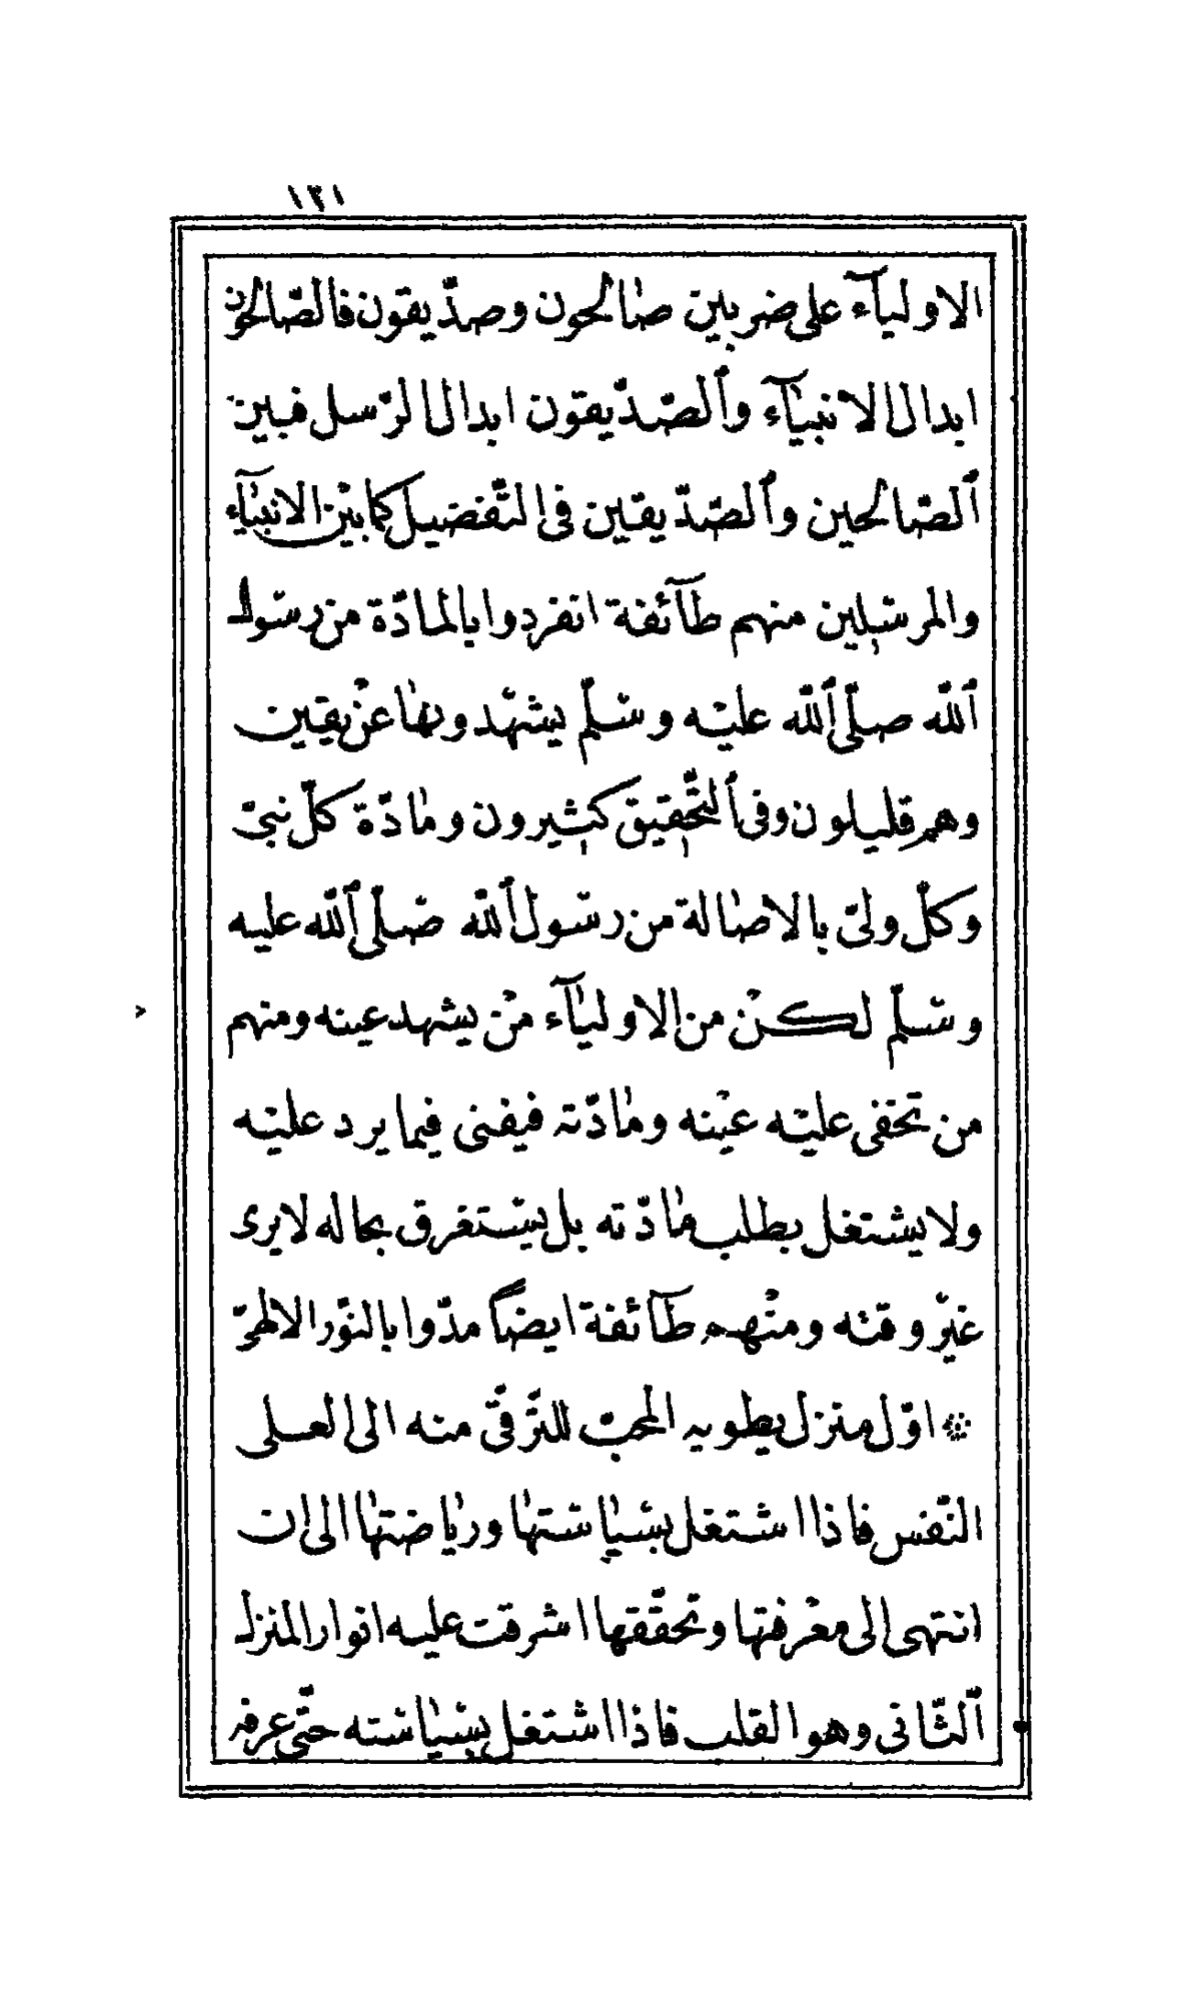 ١٣١
الاوليآء على ضربين صالحون وصدّيقون فالصّالحون
ابدال الانبيآء وٱلصّدّيقون ابدال الرّسل فبين
ٱلصّالحين وٱلصّدّيقين فى التّفضيل كما بين الانبيآء
والمرسلين منهم طآئفة انفردوا بالمادّة من رسول
ٱللّه صلّى ٱللّه عليه وسلّم يشهدونها عن يقين
وهم قليلون وفى ٱلتّحقيق كثيرون ومادّة كلّ نبىّ
وكلّ ولىّ بالاصالة من رسول ٱللّه صلّى ٱللّه عليه
وسلّم لكن من الاوليآء من يشهد عينه ومنهم
من تخفى عليه عينه ومادّته فيفنى فيما يرد عليه
ولا يشتغل بطلب مادّته بل يستغرق بحاله لا يرى
غير وقته ومنهم طآئفة ايضاً مدّوا بالنّور الالهىّ
۞ اوّل منزل يطويه المحبّ للتّرقّى منه الى العلى
النّفس فاذا اشتغل بسياستها ورياضتها الى ان
انتهى الى معرفتها وتحقّقها اشرقت عليه انوار المنزل
ٱلثّانى وهو القلب فاذا اشتغل بسياسته حتّى عرفه